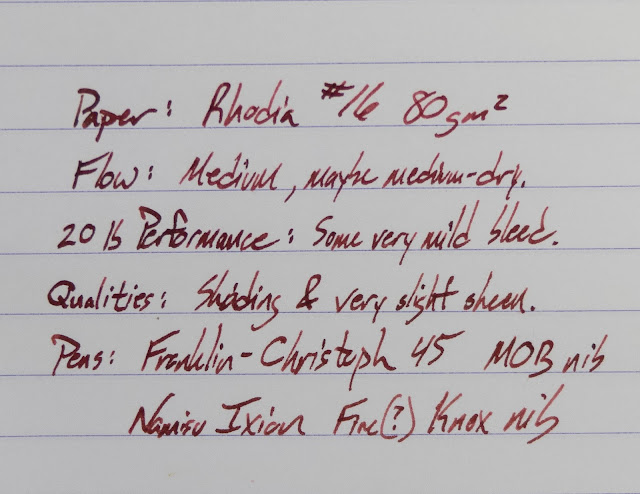 Paper: Rhodia #16 80gm²
Flow: Medium, maybe medium-dry.
20 lb Performance: Some very mild bleed.
Qualities: Shading & very slight sheen.
Pens: Franklin-Christoph 45 MOB nib
Namisu Ixion Fine(?) Knox nib